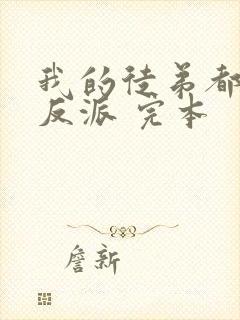 我的徒弟都
反派 完本
詹新